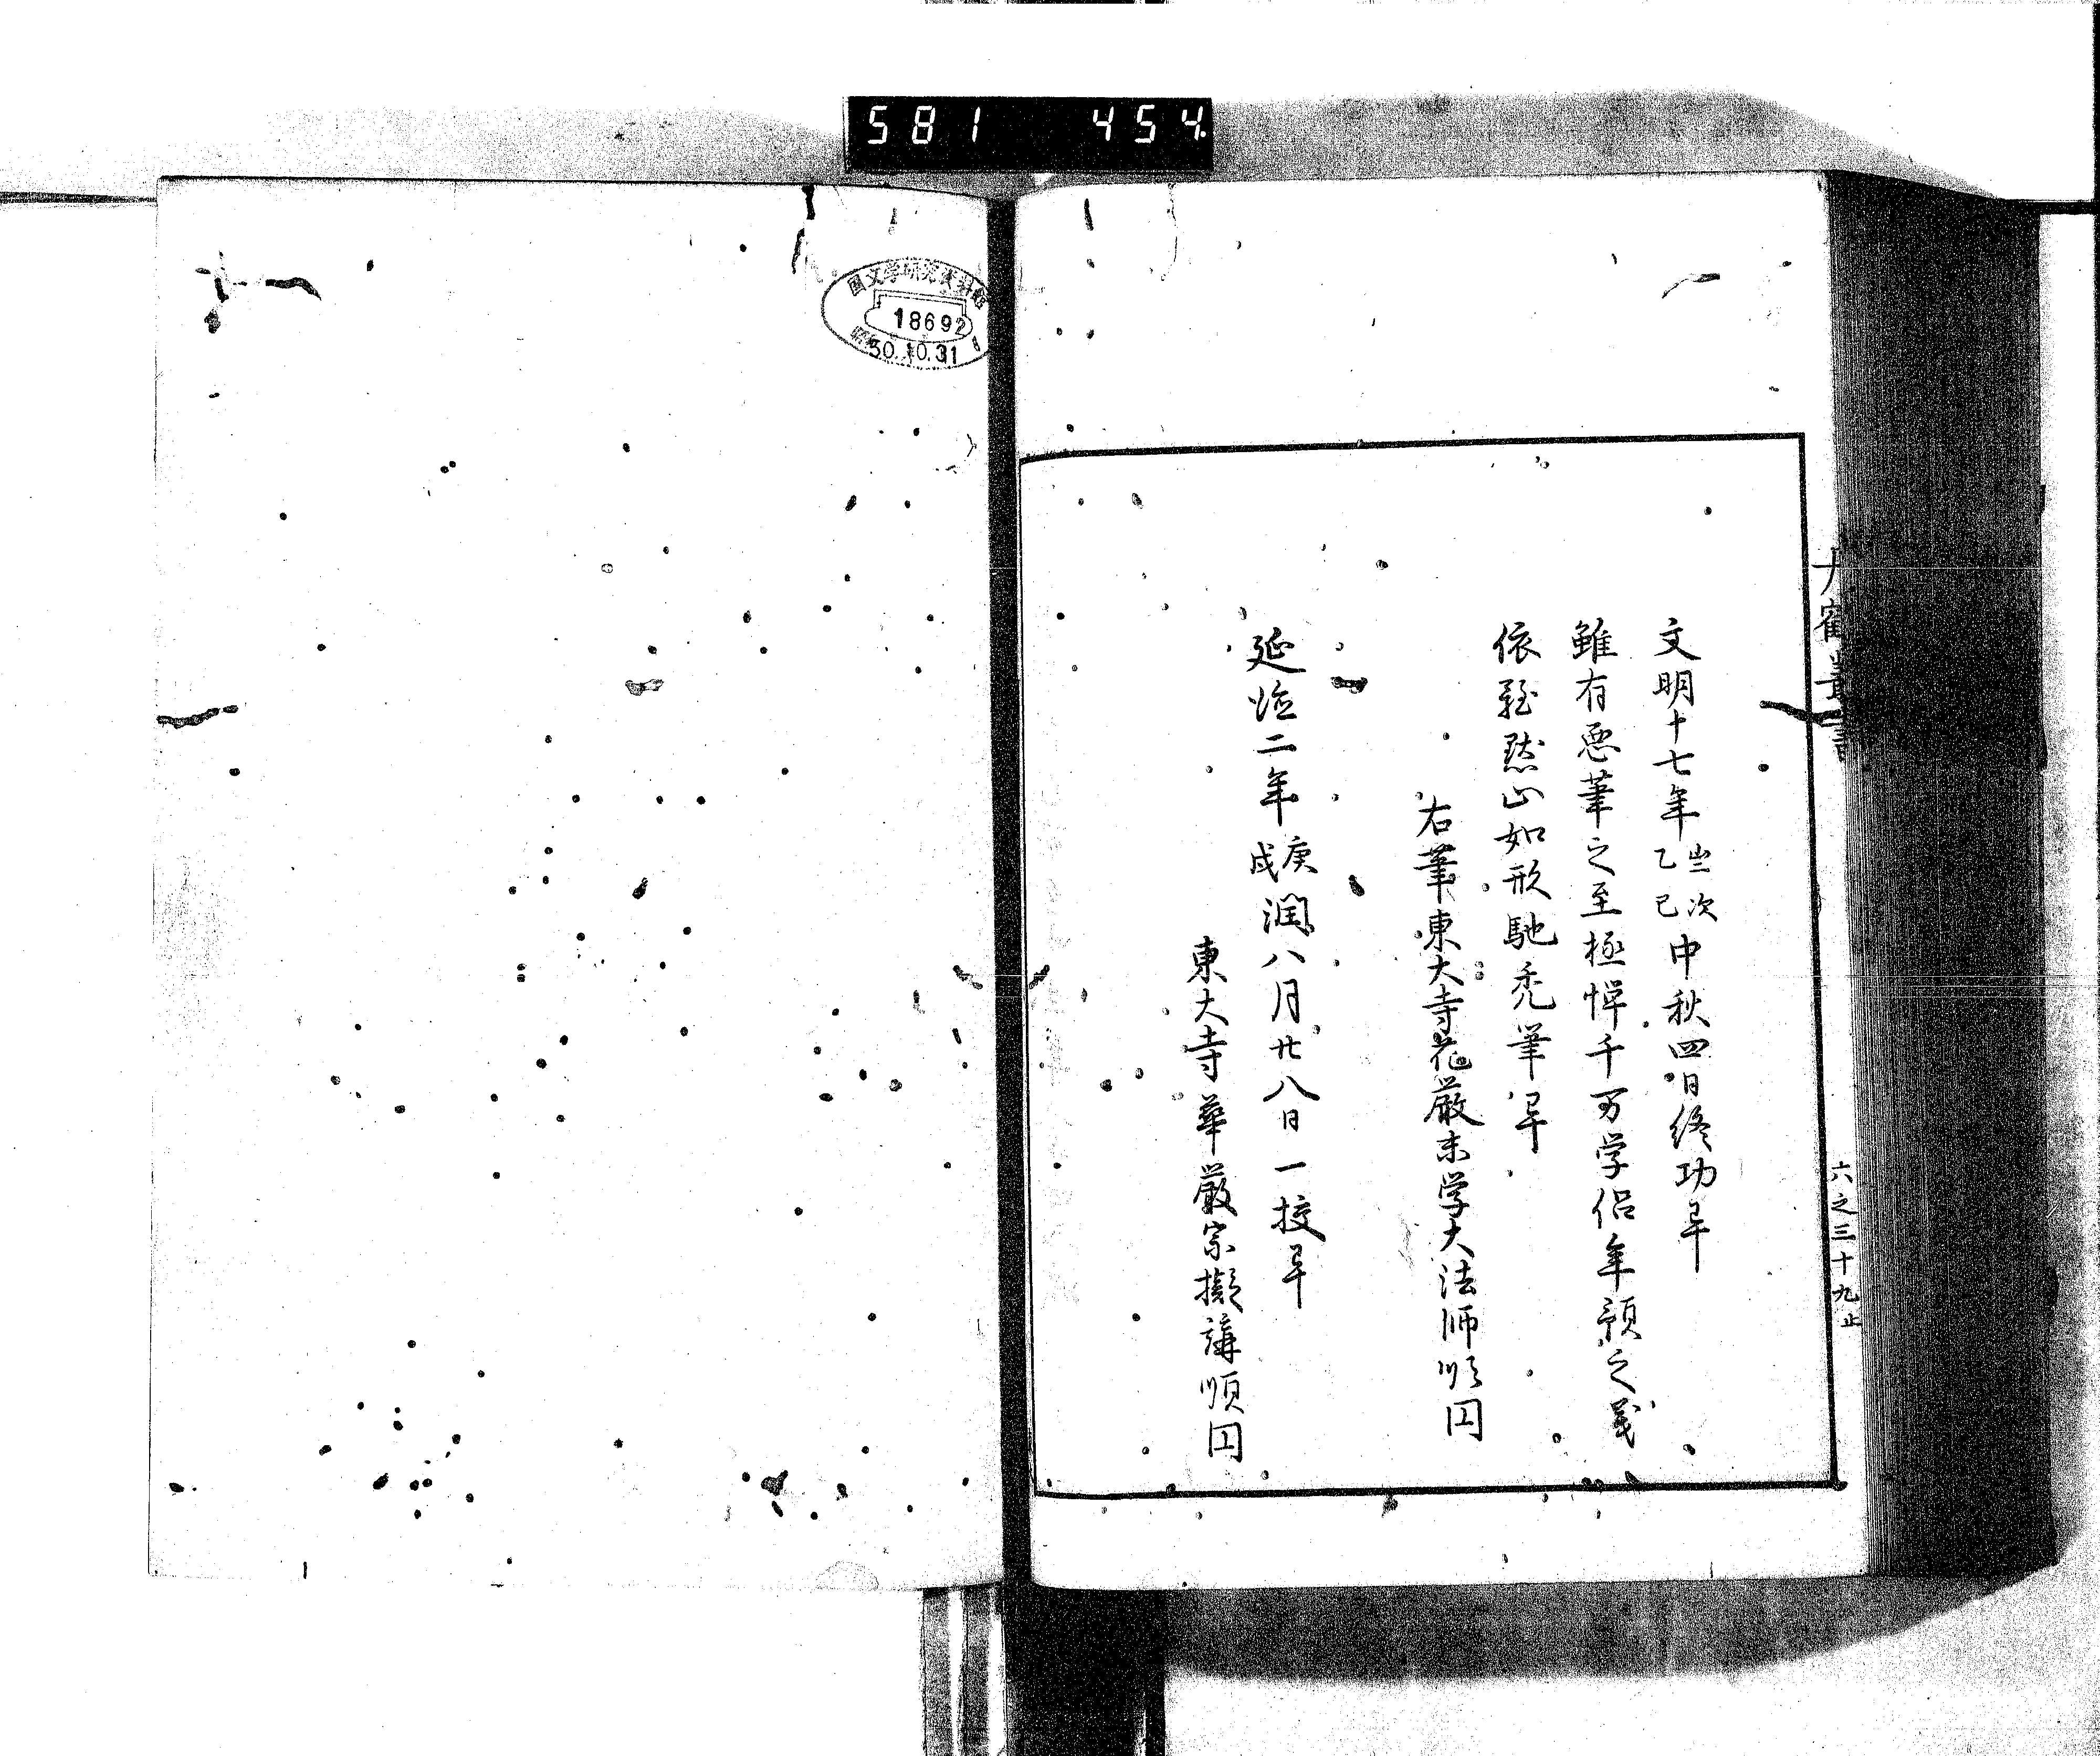 581 454
丹鶴叢書
六之三十九止
文明十七年歳次乙巳中秋四日終功畢
雖有悪筆之至極憚千万学侶年預之義
依難黙止如形馳禿筆畢
右筆東大寺花厳末学大法師順囙
延慶二年庚戌潤八月廿八日一挍畢
東大寺華厳宗擬講順囙
国文学研究資料館
18692
昭和
50.10.31